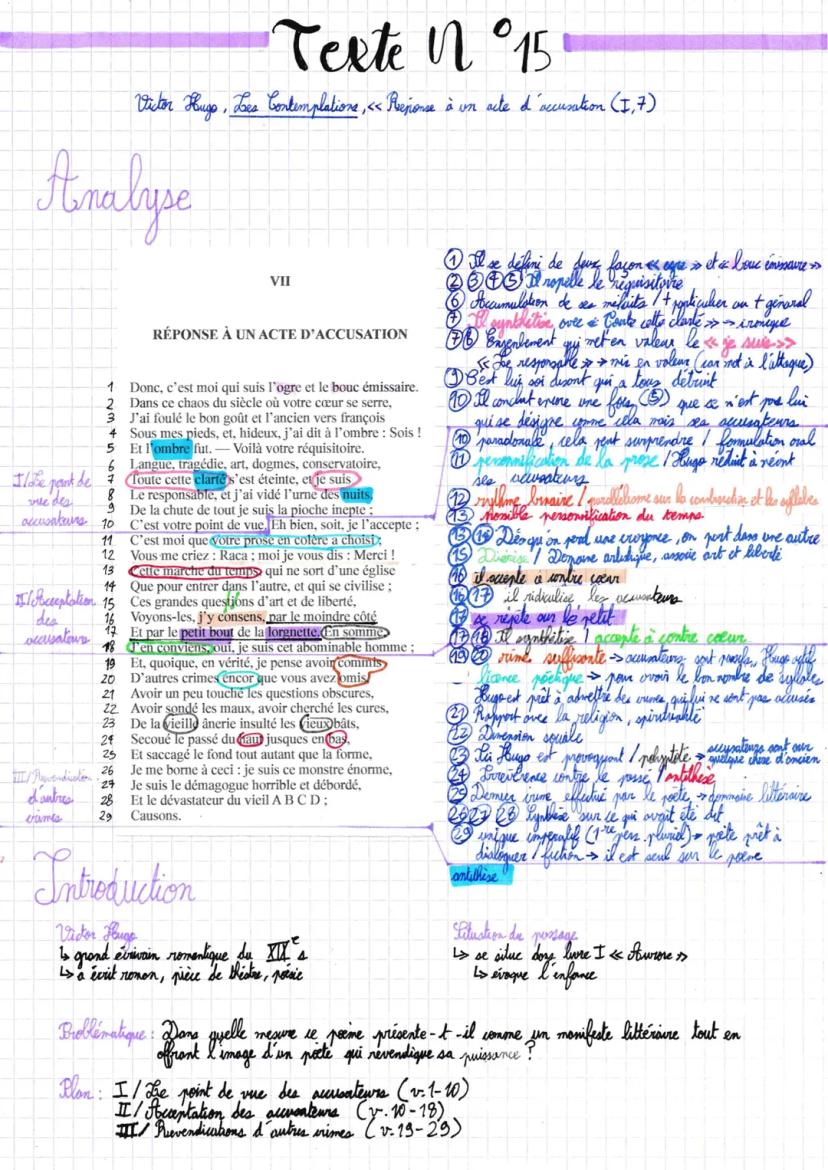 Texte N°15
Victor Hugo, Les Contemplations, << Réponse à un acte d'accusation (I,7)
Analyse
VII
RÉPONSE À UN ACTE D'ACCUSATION
1 Donc, c'est moi qui suis l'ogre et le bouc émissaire.
2 Dans ce chaos du siècle où votre cœur se serre,
3 J'ai foulé le bon goût et l'ancien vers françois
4 Sous mes pieds, et, hideux, j'ai dit à l'ombre : Sois !
5 Et l'ombre fut. — Voilà votre réquisitoire.
6 Langue, tragédie, art, dogmes, conservatoire,
7 Toute cette clarté s'est éteinte, et je suis
8 Le responsable, et j'ai vidé l'urne des nuits.
9 De la chute de tout je suis la pioche inepte ;
10 C'est votre point de vue. Eh bien, soit, je l'accepte ;
11 C'est moi que votre prose en colère a choisi ;
12 Vous me criez : Raca ; moi je vous dis : Merci !
13 Cette marche du temps, qui ne sort d'une église
14 Que pour entrer dans l'autre, et qui se civilise ;
15 Ces grandes questions d'art et de liberté,
16 Voyons-les, j'y consens, par le moindre côté
17 Et par le petit bout de la lorgnette. En somme,
18 J'en conviens, oui, je suis cet abominable homme ;
19 Et, quoique, en vérité, je pense avoir commis
20 D'autres crimes encor que vous avez omis,
21 Avoir un peu touché les questions obscures,
22 Avoir sondé les maux, avoir cherché les cures,
23 De la vieille ânerie insulté les vieux bâts,
24 Secoué le passé du haut jusques en bas,
25 Et saccagé le fond tout autant que la forme,
26 Je me borne à ceci : je suis ce monstre énorme,
27 Je suis le démagogue horrible et débordé,
28 Et le dévastateur du vieil A B C D ;
29 Causons.
I/Le point de
vue des
accusateurs
II/Acceptation
des
accusateurs
III/Revendication
d'autres
crimes
1 Il se défini de deux façon << ogre >> et << bouc émissaire >>
2 3 4 5 Il rapelle le réquisitoire
6 Accumulation de ses méfaits / + particulier au + général
7 Il synthétise avec << Toute cette clarté >> → ironique
7 8 Enjambement qui met en valeur le << je suis >>
<< Le responsable >> → mis en valeur (car mot à l'attaque)
9 C'est lui soi disant qui a tous détruit
10 Il conclut encore une fois, (5) que ce n'est pas lui
qui se désigne comme cela mais ses accusateurs
10 paradoxale, cela peut surprendre / formulation oral
11 personnification de la prose / Hugo réduit à néant
ses accusateurs
12 rythme binaire / parallélisme sur la construction et les syllabes
13 possible personnification du temps
13 14 Dès qu'on perd une croyance, on part dans une autre
15 Diérèse / Domaine artistique, associe art et liberté
16 il accepte à contre cœur
16 17 il ridiculise les accusateurs
17 se répète sur le petit
17 18 Il synthétise / accepte à contre cœur
19 20 rime suffisante → accusateurs sont passifs, Hugo actif
licence poétique → pour avoir le bon nombre de syllabes
Hugo est prêt à admettre des crimes qui lui ne sont pas accusés
21 Rapport avec la religion, spiritualité
22 Dimension sociale
23 Ici Hugo est provoquant / polyptote → accusateurs sont sur quelque chose d'ancien
24 Irrévérence contre le passé / antithèse
25 Dernier crime effectué par le poète → dommaine littéraire
26 27 28 Synthèse sur ce qui avait été dit
29 unique impératif (1re pers. pluriel) → poète prêt à
dialoguer / fiction → il est seul sur le poème
antithèse
Introduction
Victor Hugo
↳ grand écrivain romantique du XIXe s
↳ a écrit roman, pièce de théâtre, poésie
Situation du passage
↳ se situe dans livre I << Aurore >>
↳ évoque l'enfance
Problématique : Dans quelle mesure ce poème présente-t-il comme un manifeste littéraire tout en
offrant l'image d'un poète qui revendique sa puissance ?
Plan : I/ Le point de vue des accusateurs (v.1-10)
II/ Acceptation des accusateurs (v.10-18)
III/ Revendications d'autres crimes (v.19-29)